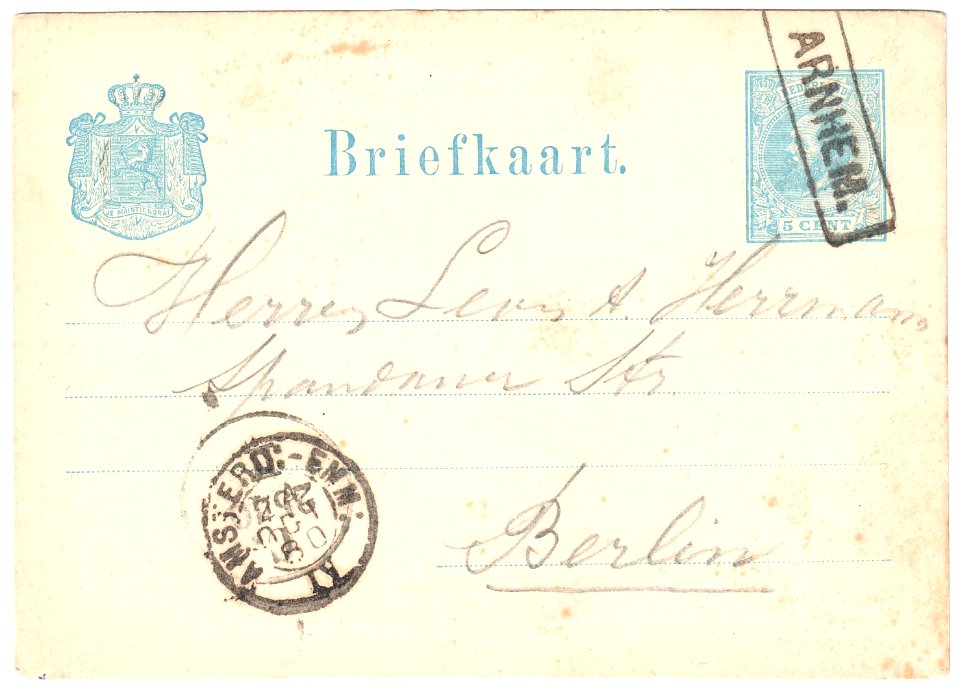 ARNHEM.
JE MAINTIENDRAI
Briefkaart.
5 CENT
Herren Levin & Herrmann
Spandauer Str.
AMSTERD:-EMM:
80
II
Berlin